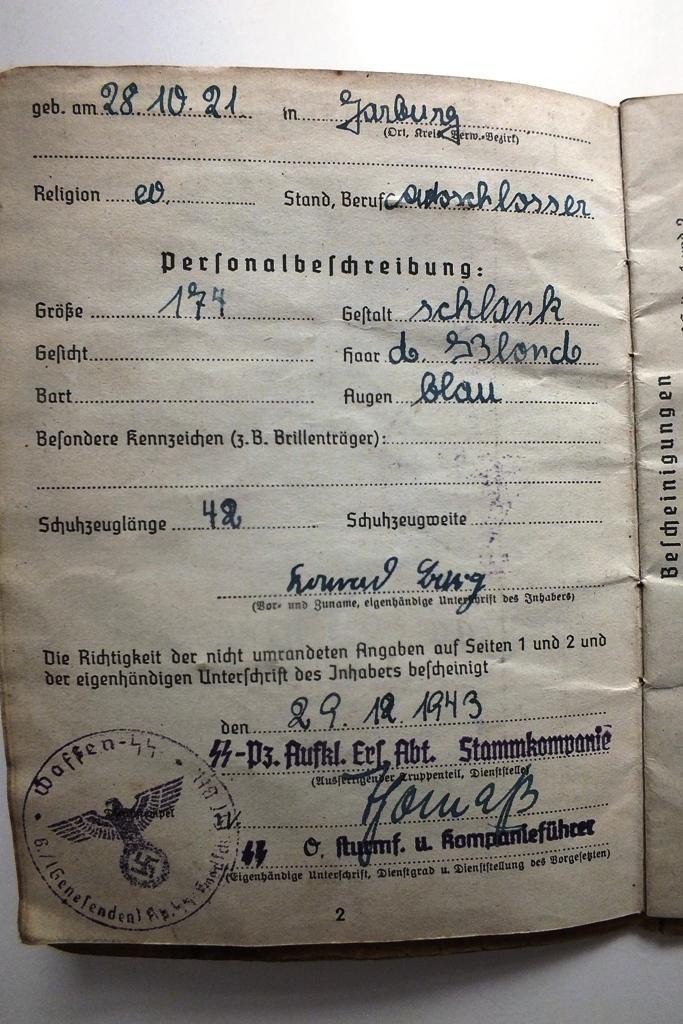 geb. am 28.10.21 in Harburg
(Ort, Kreis, Verw.-Bezirk)
Religion ev Stand, Beruf Autoschlosser
Personalbeschreibung:
Größe 174 Gestalt schlank
Gesicht Haar d. Blond
Bart Augen blau
Besondere Kennzeichen (z.B. Brillenträger):
Schuhzeuglänge 42 Schuhzeugweite
Konrad
(Vor- und Zuname, eigenhändige Unterschrift des Inhabers)
Die Richtigkeit der nicht umrandeten Angaben auf Seiten 1 und 2 und
der eigenhändigen Unterschrift des Inhabers bescheinigt
den 29.12.1943
SS-Pz. Aufkl. Ers. Abt. Stammkompanie
(Ausfertigender Truppenteil, Dienststelle)
SS O. sturmf. u. Kompanieführer
(Eigenhändige Unterschrift, Dienstgrad u. Dienststellung des Vorgesetzten)
Waffen-SS
Dienststempel
6./(Genesenden)
2
Bescheinigungen